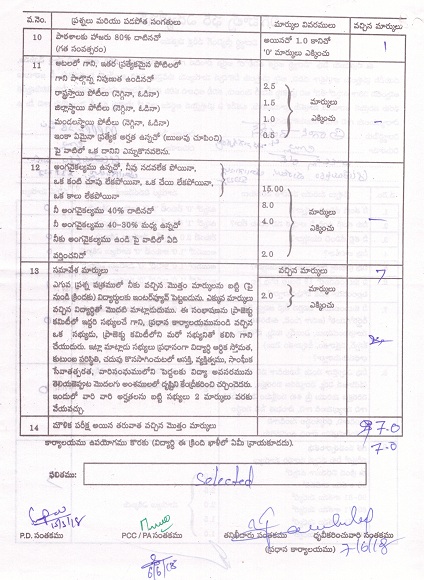 వ.నెం. ప్రశ్నలు మరియు పదపోత సంగతులు మార్కుల వివరములు వచ్చిన మార్కులు
10 పాఠశాలకు హాజరు 80% దాటినదో అయినదో 1.0 కానిచో 1
(గత సంవత్సరం) '0' మార్కులు ఎక్కించు
11 ఆటలలో గాని, ఇతర ప్రత్యేకమైన పోటీలలో
గాని పాల్గొన్న నిపుణుత ఉండినదో
రాష్ట్రస్థాయి పోటీలు (నెగ్గినా, ఓడినా) 2.5
జిల్లాస్థాయి పోటీలు (నెగ్గినా, ఓడినా) 1.5 మార్కులు
మండలస్థాయి పోటీలు (నెగ్గినా, ఓడినా) 1.0 ఎక్కించు
ఇంకా ఏమైనా ప్రత్యేక అర్హత ఉన్నదో (ఋజువు చూపించి) 0.5
పై వాటిలో ఒక దానిని ఎన్నుకొనవలెను.
12 అంగవైకల్యము ఉన్నదో, నీవు నడవలేక పోయినా,
ఒక కంటి చూపు లేకపోయినా, ఒక చేయి లేకపోయినా, 15.00
ఒక కాలు లేకపోయినా 8.0 మార్కులు
నీ అంగవైకల్యము 40% దాటినదో 4.0
నీ అంగవైకల్యము 40-30% మధ్య ఉన్నదో ఎక్కించు
నీకు అంగవైకల్యము ఉండి పై వాటిలో ఏది
వర్తించనిచో 2.0
13 సమావేశ మార్కులు వచ్చిన మార్కులు 7
ఎగువ ప్రశ్న పత్రములో నీకు వచ్చిన మొత్తం మార్కులను బట్టి (పై 2.0 మార్కులు
నుండి క్రిందకు) విద్యార్థులకు ఇంటర్వ్యూవ్ పెట్టబడును. ఎక్కువ మార్కులు ఎక్కించు
వచ్చిన విద్యార్థితో మొదట మాట్లాడుదుము. ఈ సంభాషణను ప్రాజెక్టు
కమిటీలో ఇద్దరి సభ్యులచే గాని, ప్రధాన కార్యాలయమునుండి వచ్చిన
ఒక సభ్యుడు, ప్రాజెక్టు కమిటీలోని మరో సభ్యునితో కలిసి గాని
చేయుదురు. ఇట్లా మాట్లాడు సభ్యులు ప్రధానంగా విద్యార్థి ఆర్థిక స్తోమత,
కుటుంబ పరిస్థితి, చదువు కొనసాగించుటలో ఆసక్తి, వ్యక్తిత్వము, సాంఘీక
సేవాతత్పరత, వారిసంఘములలోని పెద్దలకు విద్యా అవసరమును
తెలియజెప్పుట మొదలగు అంశములలో దృష్టిని కేంద్రీకరించి చర్చించెదరు.
ఇందులో వారి వారి అర్హతలను బట్టి సభ్యులు 2 మార్కులు వరకు
వేయవచ్చు.
14 మౌలిక పరీక్ష అయిన తరువాత వచ్చిన మొత్తం మార్కులు 7.0
కార్యాలయము ఉపయోగము కొరకు (విద్యార్థి ఈ క్రింది ఖాళీలో ఏమీ వ్రాయకూడదు). 7.0
ఫలితము: Selected
P.D. సంతకము PCC / PA సంతకము తనిఖీదారు సంతకము ధృవీకరించువారి సంతకము
(ప్రధాన కార్యాలయము) 7/6/18
6/6/18